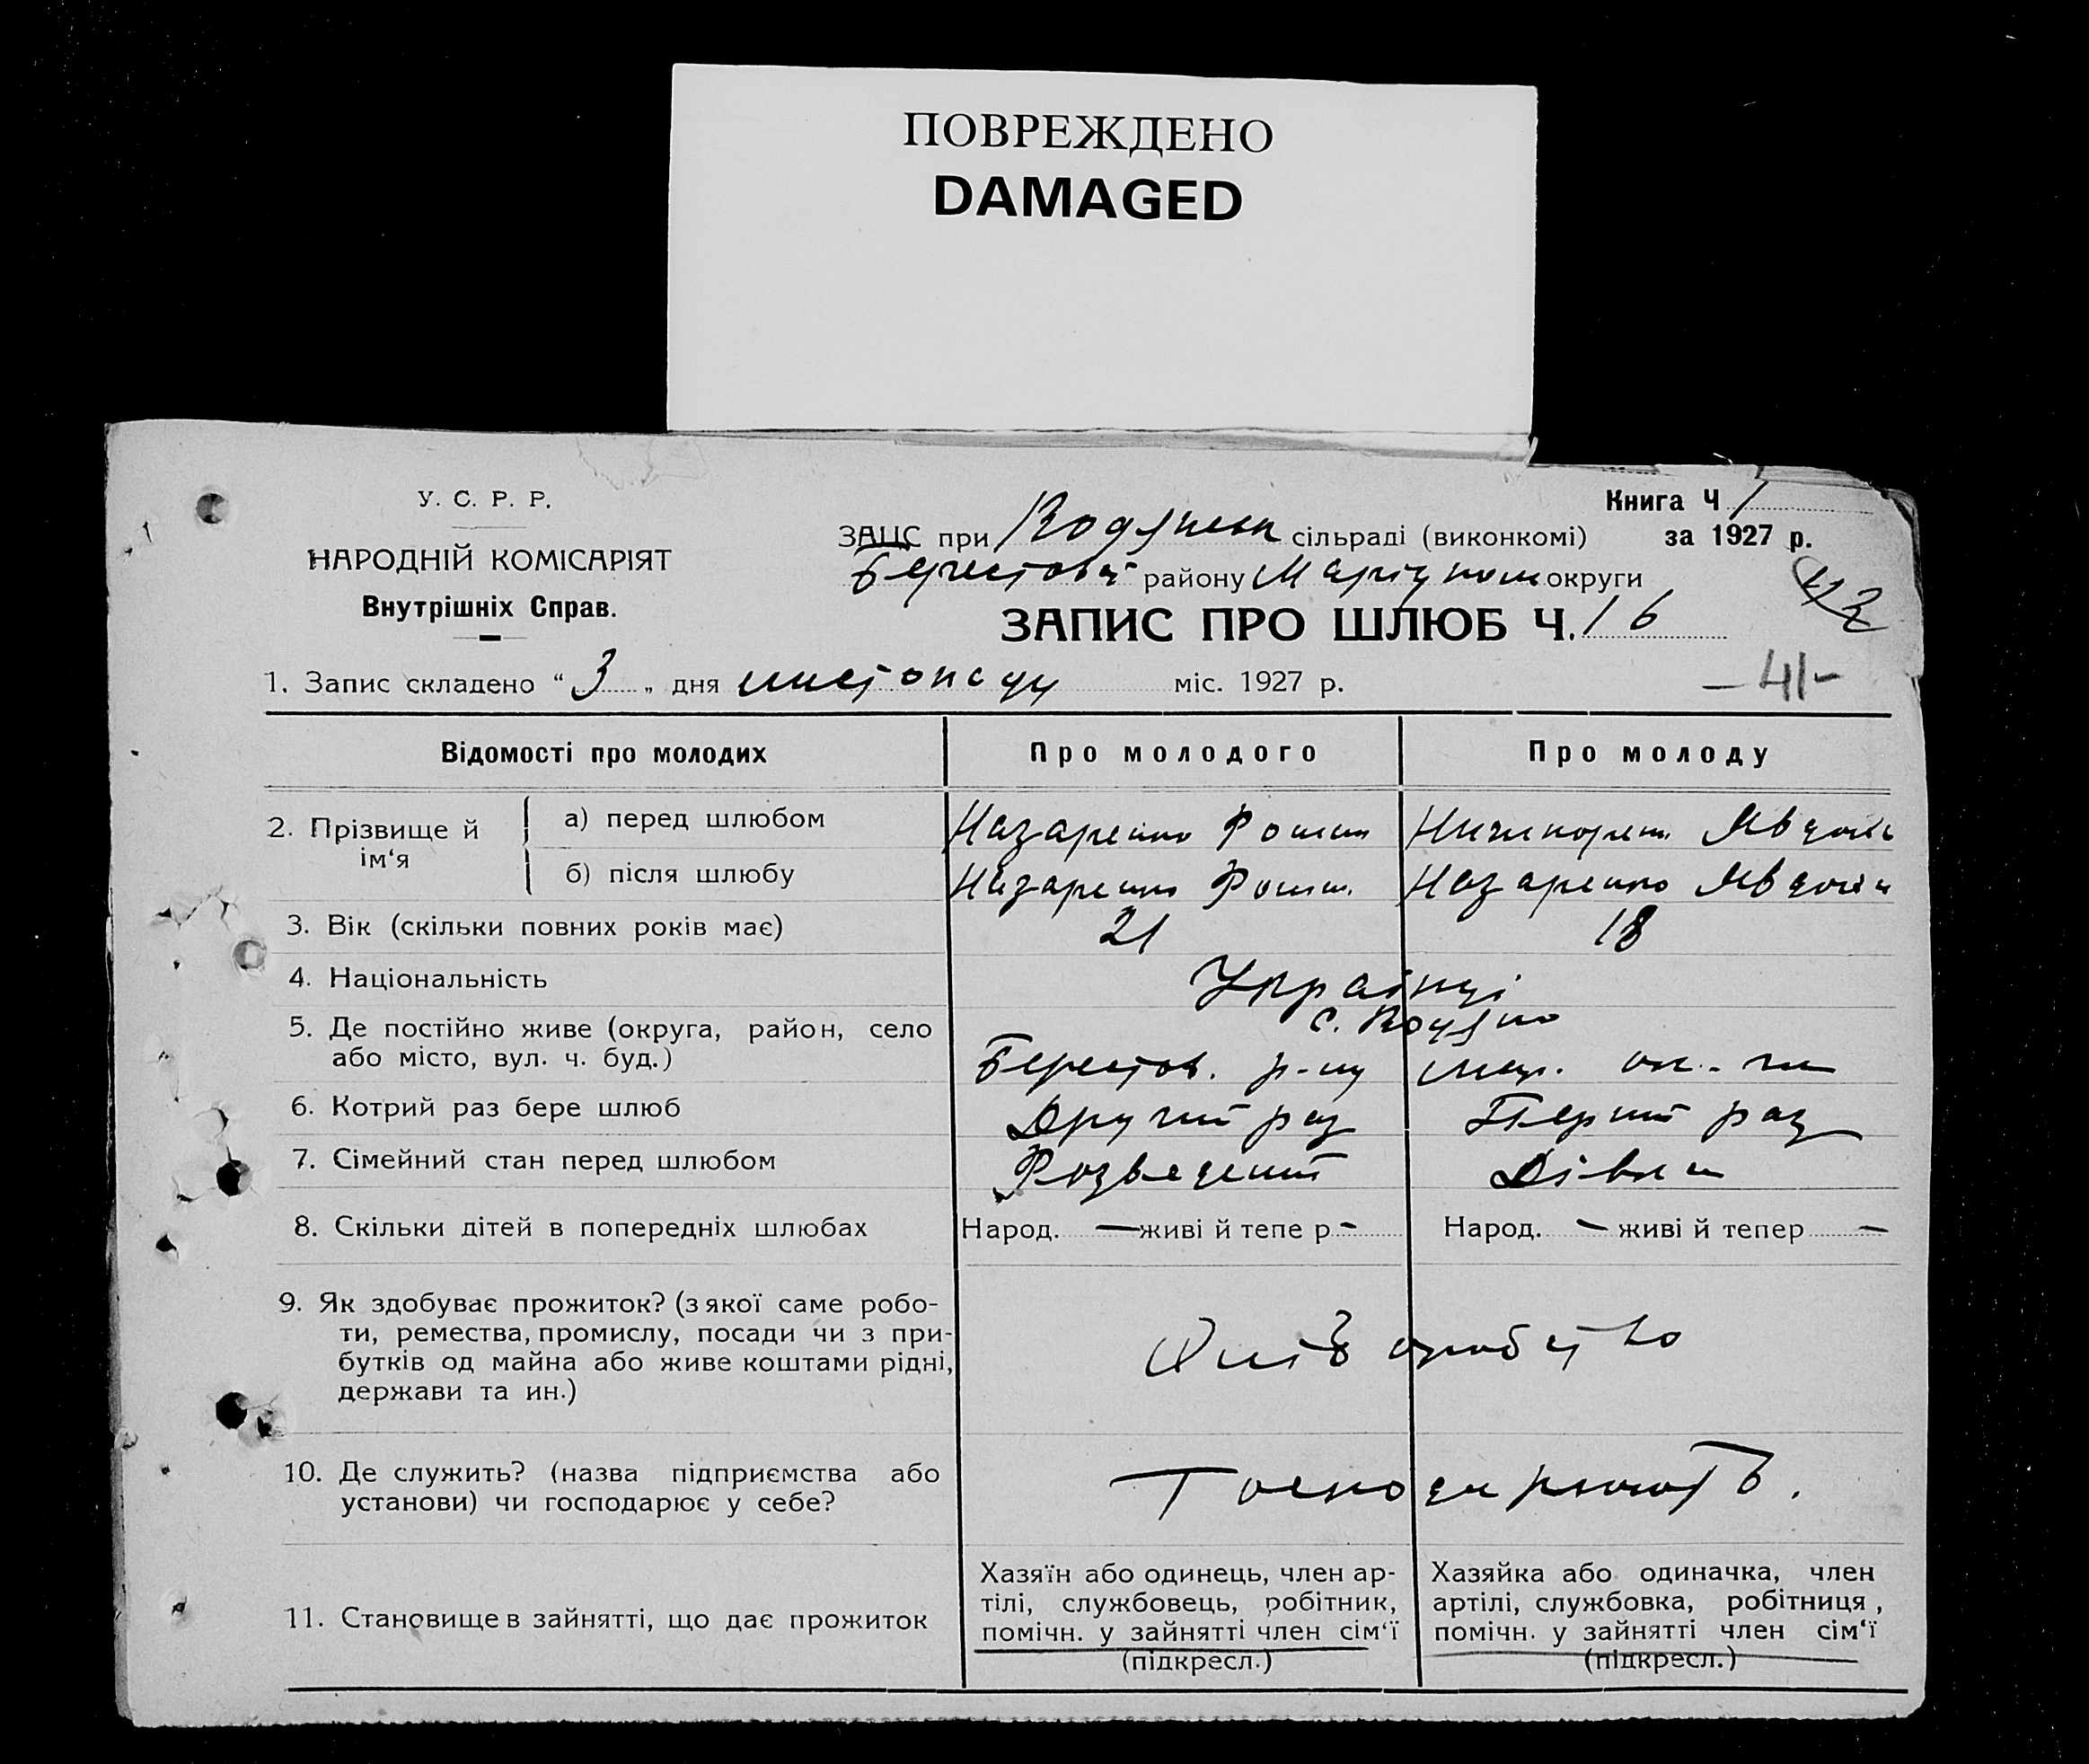 ПОВРЕЖДЕНО
DAMAGED
У. С. Р. Р.
НАРОДНІЙ КОМІСАРІЯТ
Внутрішніх Справ.
Книга Ч 1
за 1927 р.
ЗАЦС при сільраді (виконкомі)
району округи
ЗАПИС ПРО ШЛЮБ Ч. 16
42
1. Запис складено “ 3 „ дня листопаду міс. 1927 р.
— 41 -
Відомості про молодих
Про молодого
Про молоду
2. Прізвище й ім‘я
а) перед шлюбом
Назаренко
б) після шлюбу
Назаренко
Назаренко
3. Вік (скільки повних років має)
21
18
4. Національність
Українці
5. Де постійно живе (округа, район, село
або місто, вул. ч. буд.)
с. Водяно
Берестов. р-ну Мар. ок-ги
6. Котрий раз бере шлюб
Другий раз
Перший раз
7. Сімейний стан перед шлюбом
Розведений
Дівка
8. Скільки дітей в попередніх шлюбах
Народ. — живі й тепе р -
Народ. — живі й тепер —
9. Як здобуває прожиток? (з якої саме робо-
ти, ремества, промислу, посади чи з при-
бутків од майна або живе коштами рідні,
держави та ин.)
Хліборобство
10. Де служить? (назва підприємства або
установи) чи господарює у себе?
Господарюють.
11. Становище в зайнятті, що дає прожиток
Хазяїн або одинець, член ар-
тілі, службовець, робітник,
помічн. у зайнятті член сім‘ї
(підкресл.)
Хазяйка або одиначка, член
артілі, службовка, робітниця,
помічн. у зайнятті член сім‘ї
(підкресл.)